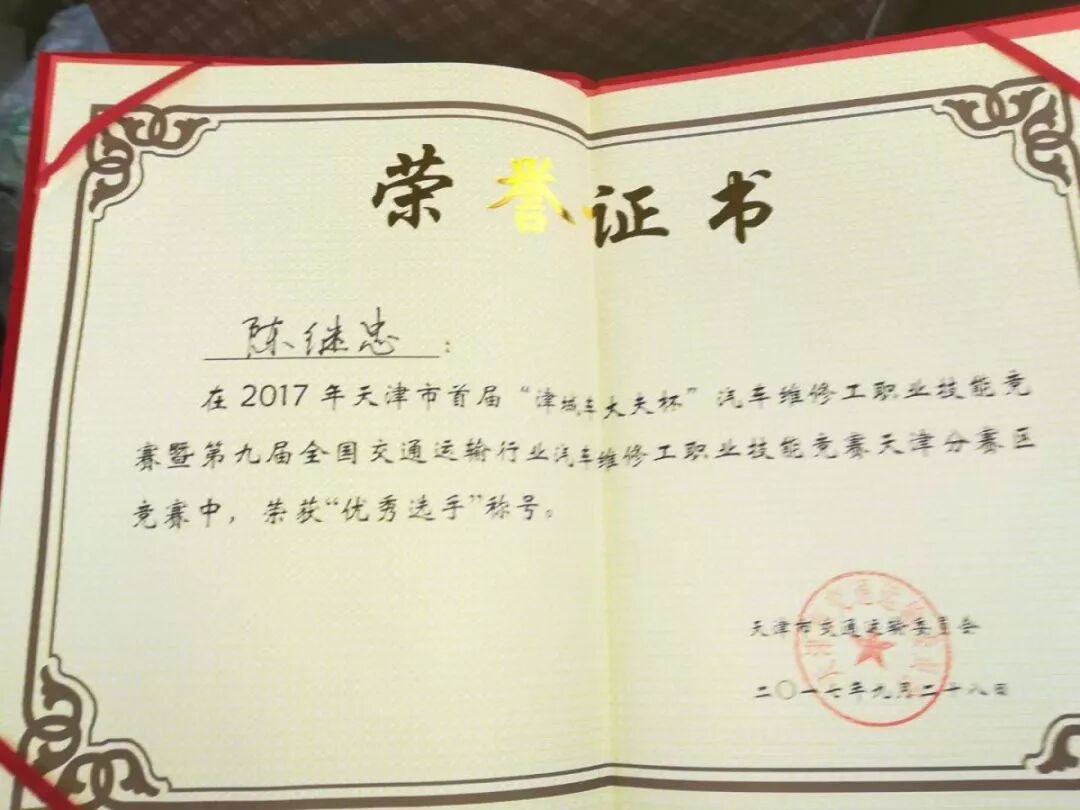 荣誉证书
陈继忠：
在2017年天津市首届“津城车大夫杯”汽车维修工职业技能竞
赛暨第九届全国交通运输行业汽车维修工职业技能竞赛天津分赛区
竞赛中，荣获“优秀选手”称号。
天津市交通运输委员会
二〇一七年九月二十八日